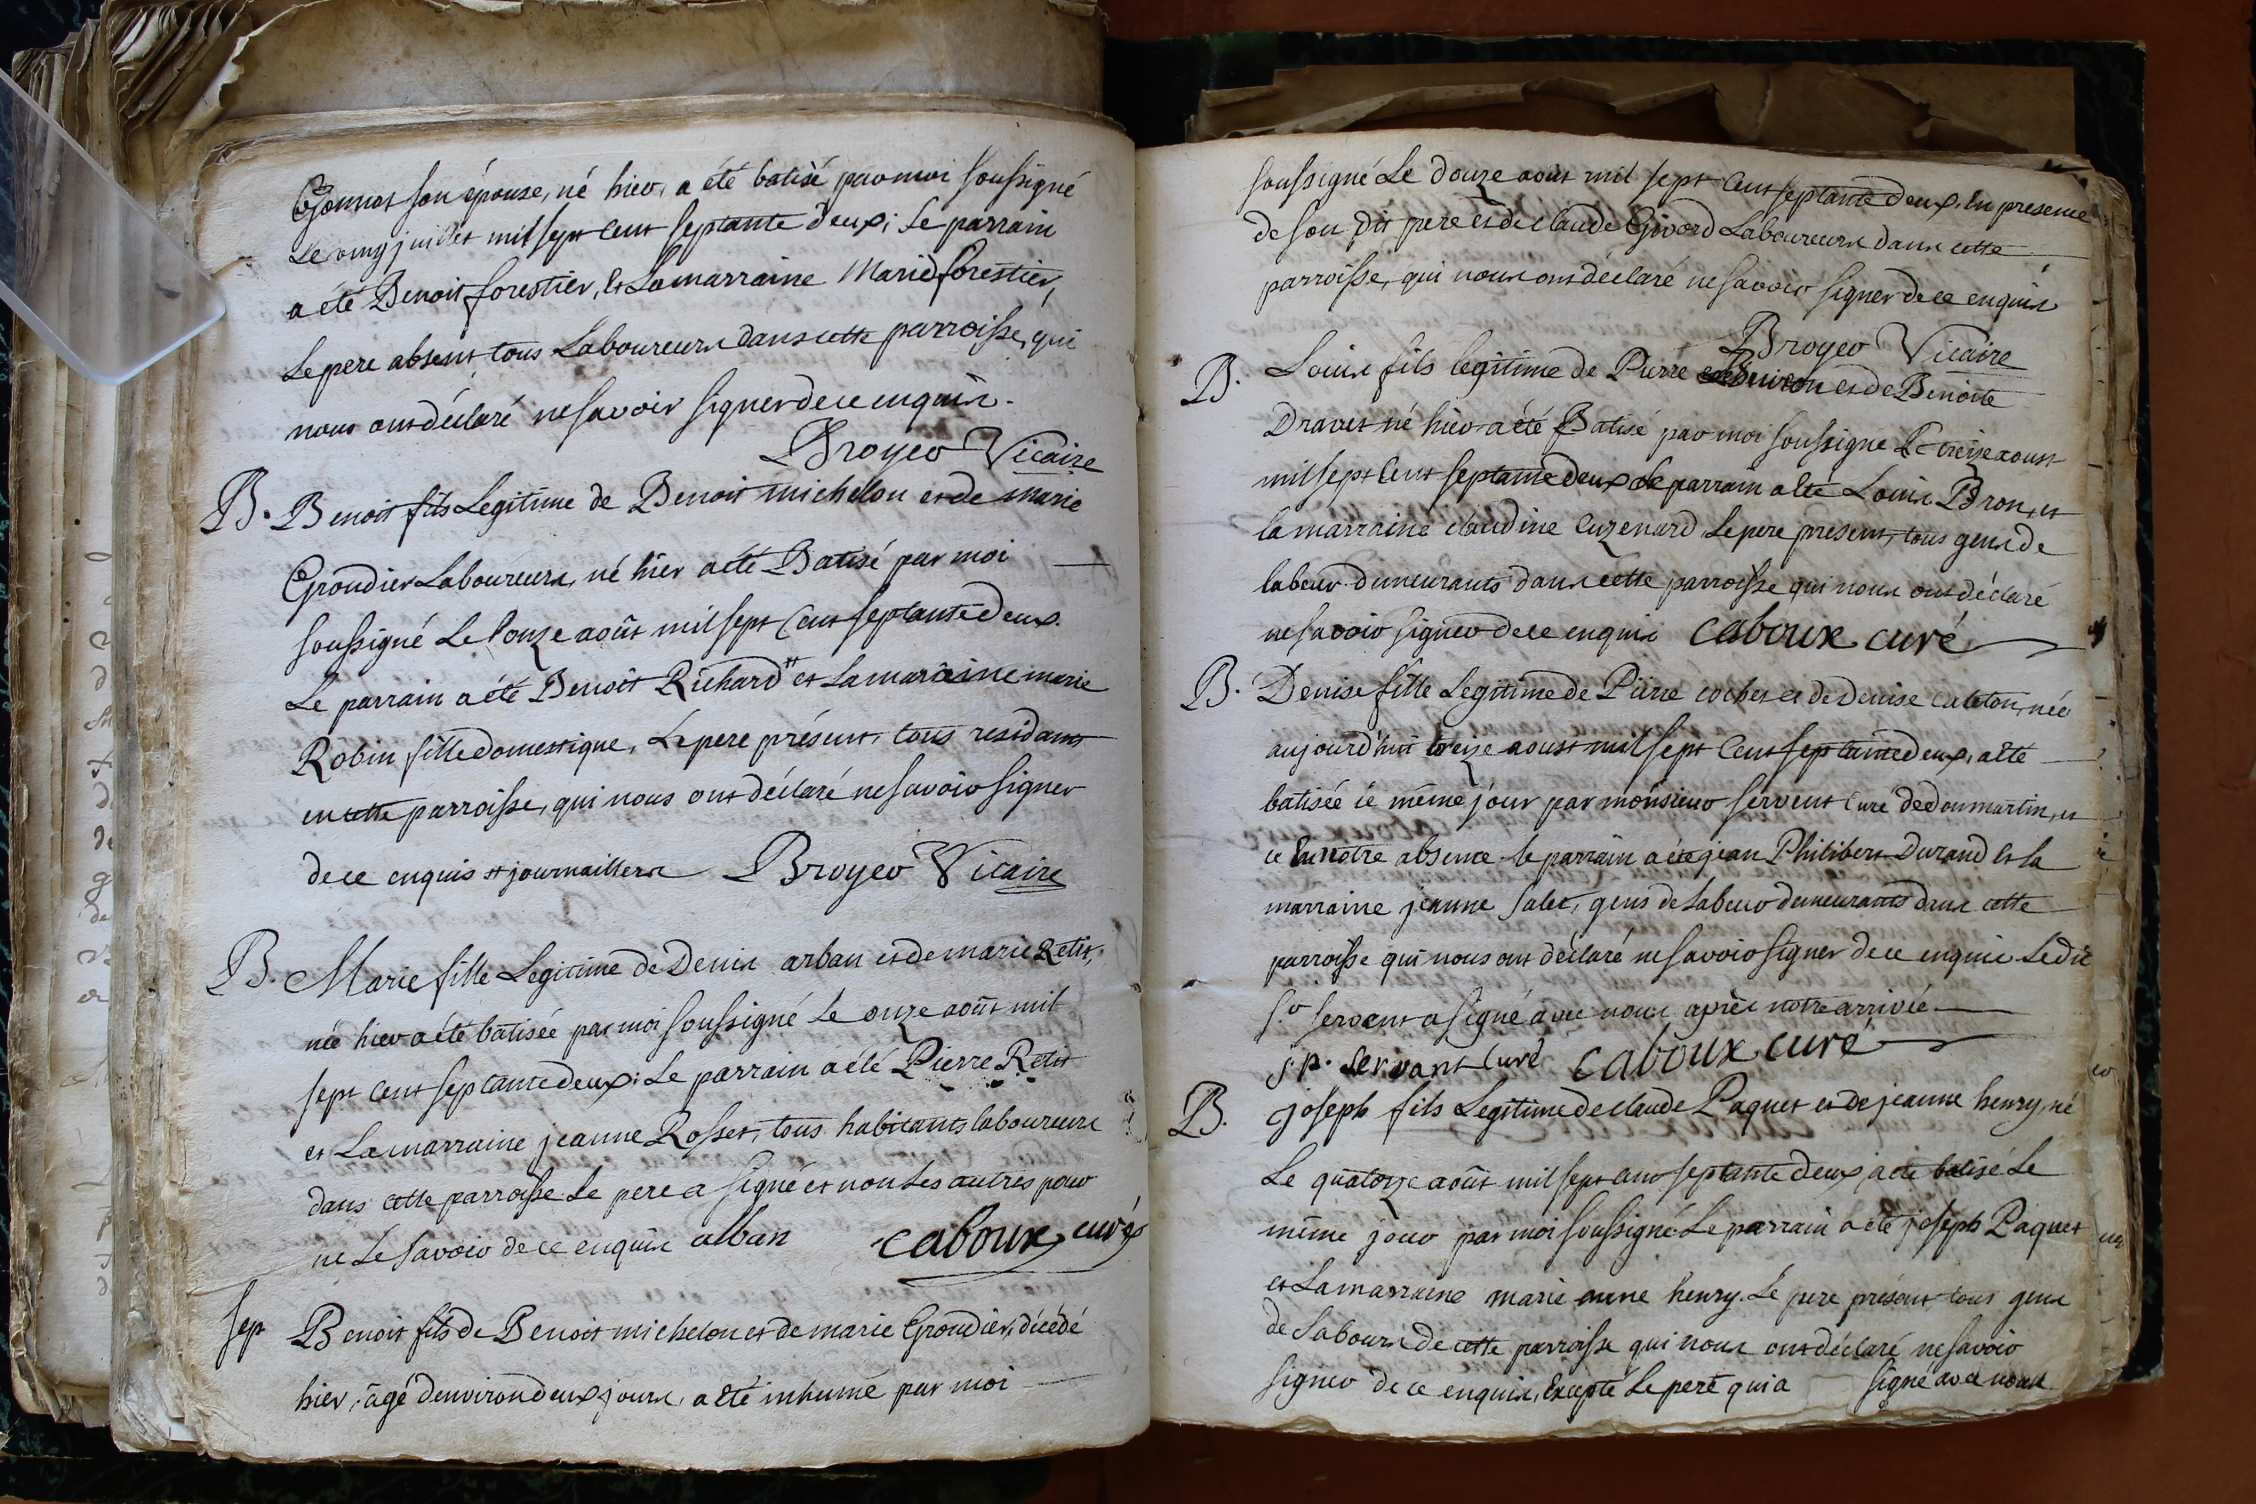 Gonnet son épouse, né hier, a été batisé par moi soussigné
Le juillet mil sept cent septante deux; Le parrain
a été Benoit forestier, et La marraine Marie forestier,
Le pere absent, tous Laboureurs dans cette parroisse, qui
nous ont déclaré ne savoir signer de ce enquis.
Broyer Vicaire
B. Benoit fils Legitime de Benoit michelon et de marie
Grondier Laboureurs, né hier a été Batisé par moi
soussigné Le onze août mil sept Cent septante deux.
Le parrain a été Benoît Richard # et La maraine marie
Robin fille domestique, Le pere présent, tous residants
en cette parroisse, qui nous ont déclaré ne savoir signer
de ce enquis # journalliers Broyer Vicaire
B. Marie fille Legitime de Denis arban et de marie Retis,
née hier a été batisée par moi soussigné Le onze août mil
sept Cent septante deux; Le parrain a été Pierre Retis
et La marraine jeanne Rosset, tous habitants laboureurs
dans cette parroisse Le pere a signé et non Les autres pour
ne Le savoir de ce enquis alban caboux curé
sep Benoit fils de Benoit michelon et de marie Grondier, décédé
hier, âgé d'environ deux jours, a été inhumé par moi
soussigné Le douze août mil sept Cent septante deux, En presence
de son dit pere et de claude Givord Laboureurs dans cette
parroisse, qui nous ont déclaré ne savoir signer de ce enquis
Broyer Vicaire
B. Louis fils legitime de Pierre et de Benoite
Dravet né hier a été Batisé par moi soussigné Le treize aoust
mil sept Cent septante deux Le parrain a été Louis Bron, et
la marraine claudine Cuzenard Le pere present, tous gens de
labeur demeurants dans cette parroisse qui nous ont déclaré
ne savoir signer de ce enquis caboux curé
B. Denise fille Legitime de Pierre cochet et de Denise caleton, née
aujourd'hui treize aoust mil sept Cent septante deux, a été
batisée le même jour par monsieur servent Curé de donmartin, et
ce En notre absence. le parrain a été jean Philibert Durand et la
marraine jeanne salet, gens de Labeur demeurants dans cette
parroisse qui nous ont déclaré ne savoir signer de ce enquis Le dit
sr servant a signé avec nous après notre arrivée
j.p. servant Curé caboux curé
B. joseph fils Legitime de claude Paquet et de jeanne henry, né
Le quatorze août mil sept cent septante deux, a été batisé Le
même jour par moi soussigné Le parrain a été joseph Paquet
et La marraine marie anne henry. Le pere présent tous gens
de Labours de cette parroisse qui nous ont déclaré ne savoir
signer de ce enquis, Excepté Le pere qui a signé avec nous